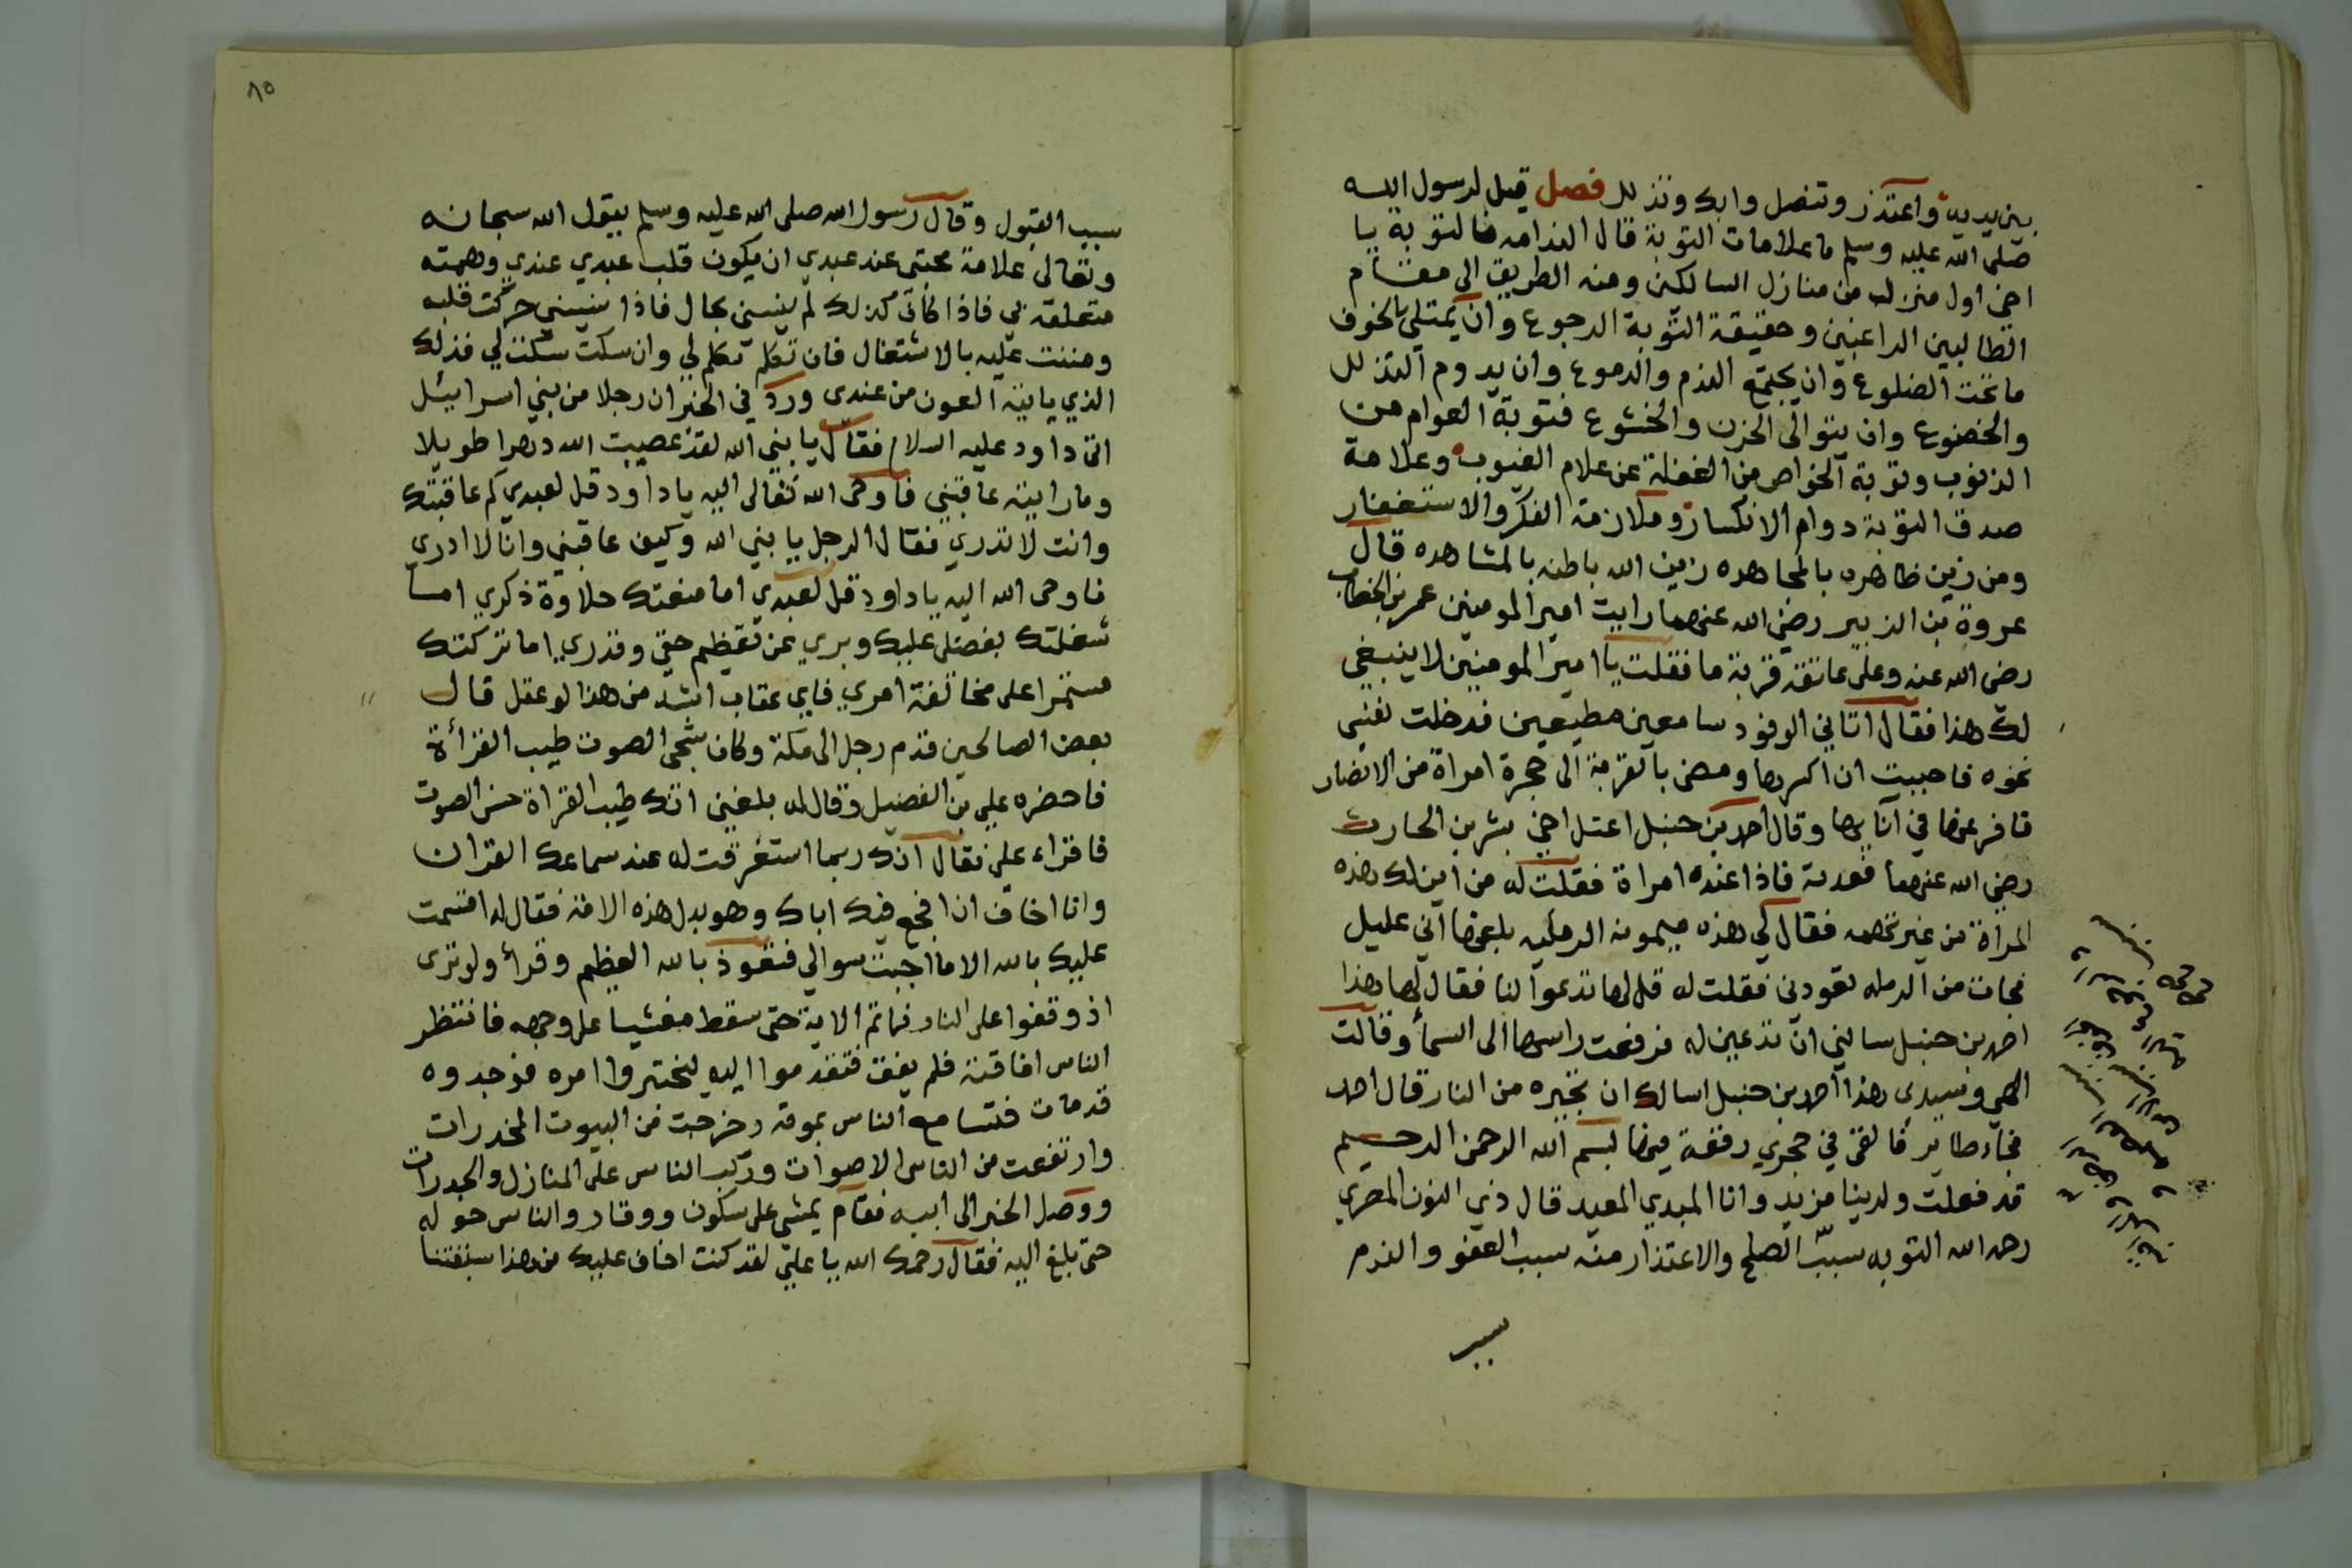 بين يديه واعتذر وتنصل وابك وتذلل فصل قيل لرسول الله
صلى الله عليه وسلم ما علامات التوبة قال الندامه فالتوبة يا
اخي اول منزله من منازل السالكين ومنه الطريق الى مقام
الطالبين الراغبين وحقيقة التوبة الرجوع وان يمتلي بالخوف
ما تحت الضلوع وان يجتمع الندم والدموع وان يدوم التذلل
والخضوع وان يتوالى الحزن والخشوع فتوبة العوام من
الذنوب وتوبة الخواص من الغفلة عن علام الغيوب وعلامة
صدق التوبة دوام الانكسار وملازمة الفكر والاستغفار
ومن زين ظاهره بالمجاهده زين الله باطنه بالمشاهده قال
عروة بن الزبير رضي الله عنهما رايت امير المومنين عمر بن الخطاب
رضي الله عنه وعلى عاتقه قربة ما فقلت يا امير المومنين لا ينبغي
لك هذا فقال اتاني الوفود سامعين مطيعين فدخلت نفسي
نخوه فاحببت ان اكسرها ومضى بالقربة الى حجرة امراة من الانصار
فافرغها في انائها وقال احمد بن حنبل اعتل اخي بشر بن الحارث
رضي الله عنهما فعدته فاذا عنده امراة فقلت له من اين لك هذه
المراة من غير تهمه فقال لي هذه ميمونه الرمليه بلغها اني عليل
فجات من الرمله تعودني فقلت له قل لها تدعوا لنا فقال لها هذا
احمد بن حنبل سالني ان تدعين له فرفعت راسها الى السمأ وقالت
الهي وسيدي هذا احمد بن حنبل اسالك ان تجيره من النار قال احمد
فجاء طاير فالقى في حجري رقعة فيها بسم الله الرحمن الرحيم
قد فعلت ولدينا مزيد وانا المبدي المعيد قال ذي النون المصري
رحمه الله التوبه سبب الصلح والاعتذار منه سبب العفو والندم
سبب
٨٥
سبب القبول وقال رسول الله صلى الله عليه وسلم يقول الله سبحانه
وتعالى علامة محبتي عند عبدي ان يكون قلب عبدي عندي وهمته
متعلقه بي فاذا كان كذلك لم ينسني بحال فاذا نسيني حركت قلبه
ومننت عليه بالاشتغال فان تكلم تكلم لي وان سكت سكت لي فذلك
الذي ياتيه العون من عندي ورد في الخبر ان رجلا من بني اسرائيل
اتى داود عليه السلام فقال يا نبي الله لقد عصيت الله دهرا طويلا
وما رايته عاقبني فاوحى الله تعالى اليه يا داود قل لعبدي كم عاقبتك
وانت لا تدري فقال الرجل يا نبي الله وكيف عاقبني وانا لا ادري
فاوحى الله اليه يا داود قل لعبدي اما منعتك حلاوة ذكري اما
شغلتك بفضلي عليك وبري عن تعظيم حقي وقدري اما تركتك
مستمرا على مخالفة امري فاي عقاب اشد من هذا لو عقل قال
بعض الصالحين قدم رجل الى مكة وكان شجي الصوت طيب القرأة
فاحضره علي بن الفضيل وقال له بلغني انك طيب القراة حسن الصوت
فاقراء علي فقال انك ربما استغرقت له عند سماعك القران
وانا اخاف ان افجع فيك اباك وهو بدل هذه الامة فقال له اقسمت
عليك بالله الا ما اجبت سوالي فتعوذ بالله العظيم وقرأ ولو ترى
اذ وقفوا على النار فما تم الاية حتى سقط مغشيا على وجهه فانتظر
الناس افاقته فلم يفق فتقدموا اليه ليختبروا امره فوجدوه
قد مات فتسامع الناس بموته وخرجت من البيوت المخدرات
وارتفعت من الناس الاصوات وركب الناس على المنازل والجدرات
ووصل الخبر الى ابيه فقام يمشي على سكون ووقار والناس حوله
حتى بلغ اليه فقال رحمك الله يا علي لقد كنت اخاف عليك من هذا سبقتنا